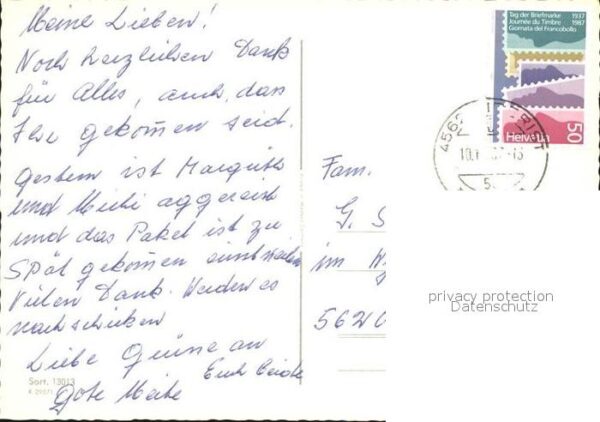 Meine Lieben!
Noch herzlichen Dank
für Alles, auch, das
Ihr gekomen seid.
Gestern ist Margrith
und Michi aggereist
und das Paket ist zu
Spät gekomen
Vielen Dank. Werden es
nachschicken
Liebe Grüsse an
Euch Beide
Gote Meite
Sort. 13013
Fam.
G. S
im
562
Tag der Briefmarke 1937
Journée du Timbre 1987
Giornata del Francobollo
Helvetia 50
456
10.
5
privacy protection
Datenschutz